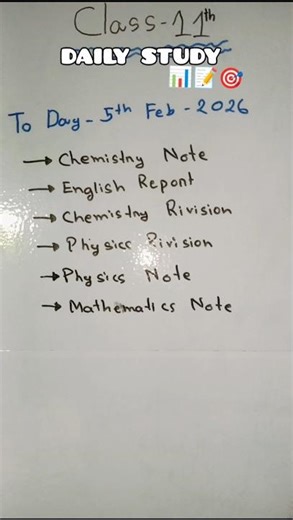 Class-11th
DAILY STUDY
📊📝🎯
To Day - 5th Feb - 2026
→ Chemistny Note
→ English Repont
→ Chemistny Rivision
→ Physics Rivision
→ Physics Note
→ Mathematics Note